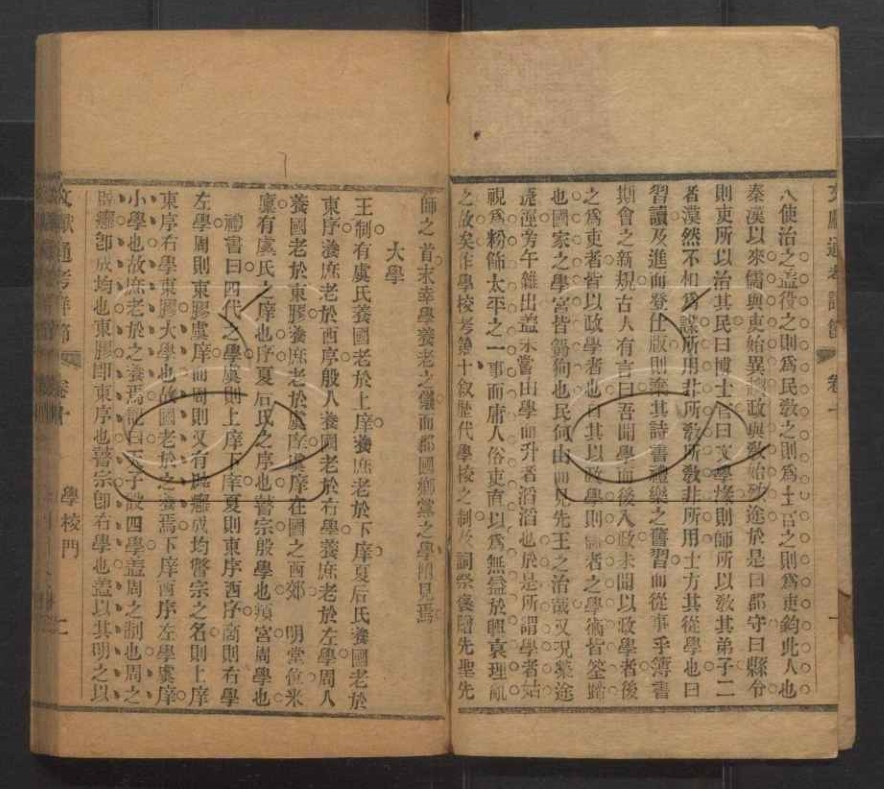 文獻通考詳節　卷十
八使治之蓋役之則爲民敎之則爲士官之則爲吏鈞此人也
秦漢以來儒與吏始異趨政與敎始殊途於是曰郡守曰縣令
則吏所以治其民曰博士官曰文學掾則師所以敎其弟子二
者漠然不相爲謀所用非所敎所敎非所用士方其從學也曰
習讀及進而登仕版則棄其詩書禮樂之舊習而從事乎簿書
期會之新規古人有言曰吾聞學而後入政未聞以政學者後
之爲吏者皆以政學者也自其以政學則儒者之學術皆筌蹄
也國家之學宮皆芻狗也民何由而見先王之治哉又况榮途
旁午雜出蓋未嘗由學而升者滔滔也於是所謂學者姑
視爲粉飾太平之一事而庸人俗吏直以爲無益於興衰理亂
之故矣作學校考第十叙歴代學校之制及祠祭褒贈先聖先
師之首末幸學養老之儀而郡國鄉黨之學附見焉
大學
王制有虞氏養國老於上庠養庶老於下庠夏后氏養國老於
東序養庶老於西序殷人養國老於右學養庶老於左學周人
養國老於東膠養庶老於虞庠虞庠在國之西郊　明堂位米
廩有虞氏之庠也序夏后氏之序也瞽宗殷學也頖宮周學也
禮書曰四代之學虞則上庠下庠夏則東序西序商則右學
左學周則東膠虞庠而周則又有辟癰成均瞽宗之名則上庠
東序右學東膠大學也故國老於之養焉下庠西序左學虞庠
小學也故庶老於之養焉記曰天子設四學蓋周之制也周之
辟癰卽成均也東膠卽東序也瞽宗卽右學也蓋以其明之以
文獻通考詳節　卷十　學校門　二